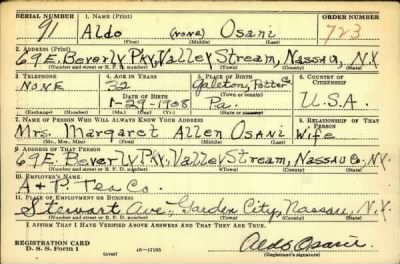 SERIAL NUMBER 1. NAME (Print) ORDER NUMBER
91 Aldo (NONE) Osani 723
(First) (Middle) (Last)
2. ADDRESS (Print)
69 E. Beverly Pky, Valley Stream, Nassau, N.Y.
(Number and street or R. F. D. number) (Town) (County) (State)
3. TELEPHONE 4. AGE IN YEARS 5. PLACE OF BIRTH 6. COUNTRY OF CITIZENSHIP
NONE 32 Galeton, Potter Co U.S.A.
DATE OF BIRTH (Town or county)
1-29-1908 Pa.
(Mo.) (Day) (Yr.) (State or country)
7. NAME OF PERSON WHO WILL ALWAYS KNOW YOUR ADDRESS 8. RELATIONSHIP OF THAT PERSON
Mrs. Margaret Allen Osani Wife
(Mr., Mrs., Miss) (First) (Middle) (Last)
9. ADDRESS OF THAT PERSON
69 E. Beverly Pky, Valley Stream, Nassau Co, N.Y.
(Number and street or R. F. D. number) (Town) (County) (State)
10. EMPLOYER'S NAME
A + P. Tea Co.
11. PLACE OF EMPLOYMENT OR BUSINESS
Stewart Ave, Garden City, Nassau, N.Y.
(Number and street or R. F. D. number) (Town) (County) (State)
I AFFIRM THAT I HAVE VERIFIED ABOVE ANSWERS AND THAT THEY ARE TRUE.
REGISTRATION CARD
D. S. S. Form 1 16-17105 Aldo Osani
(Registrant's signature)